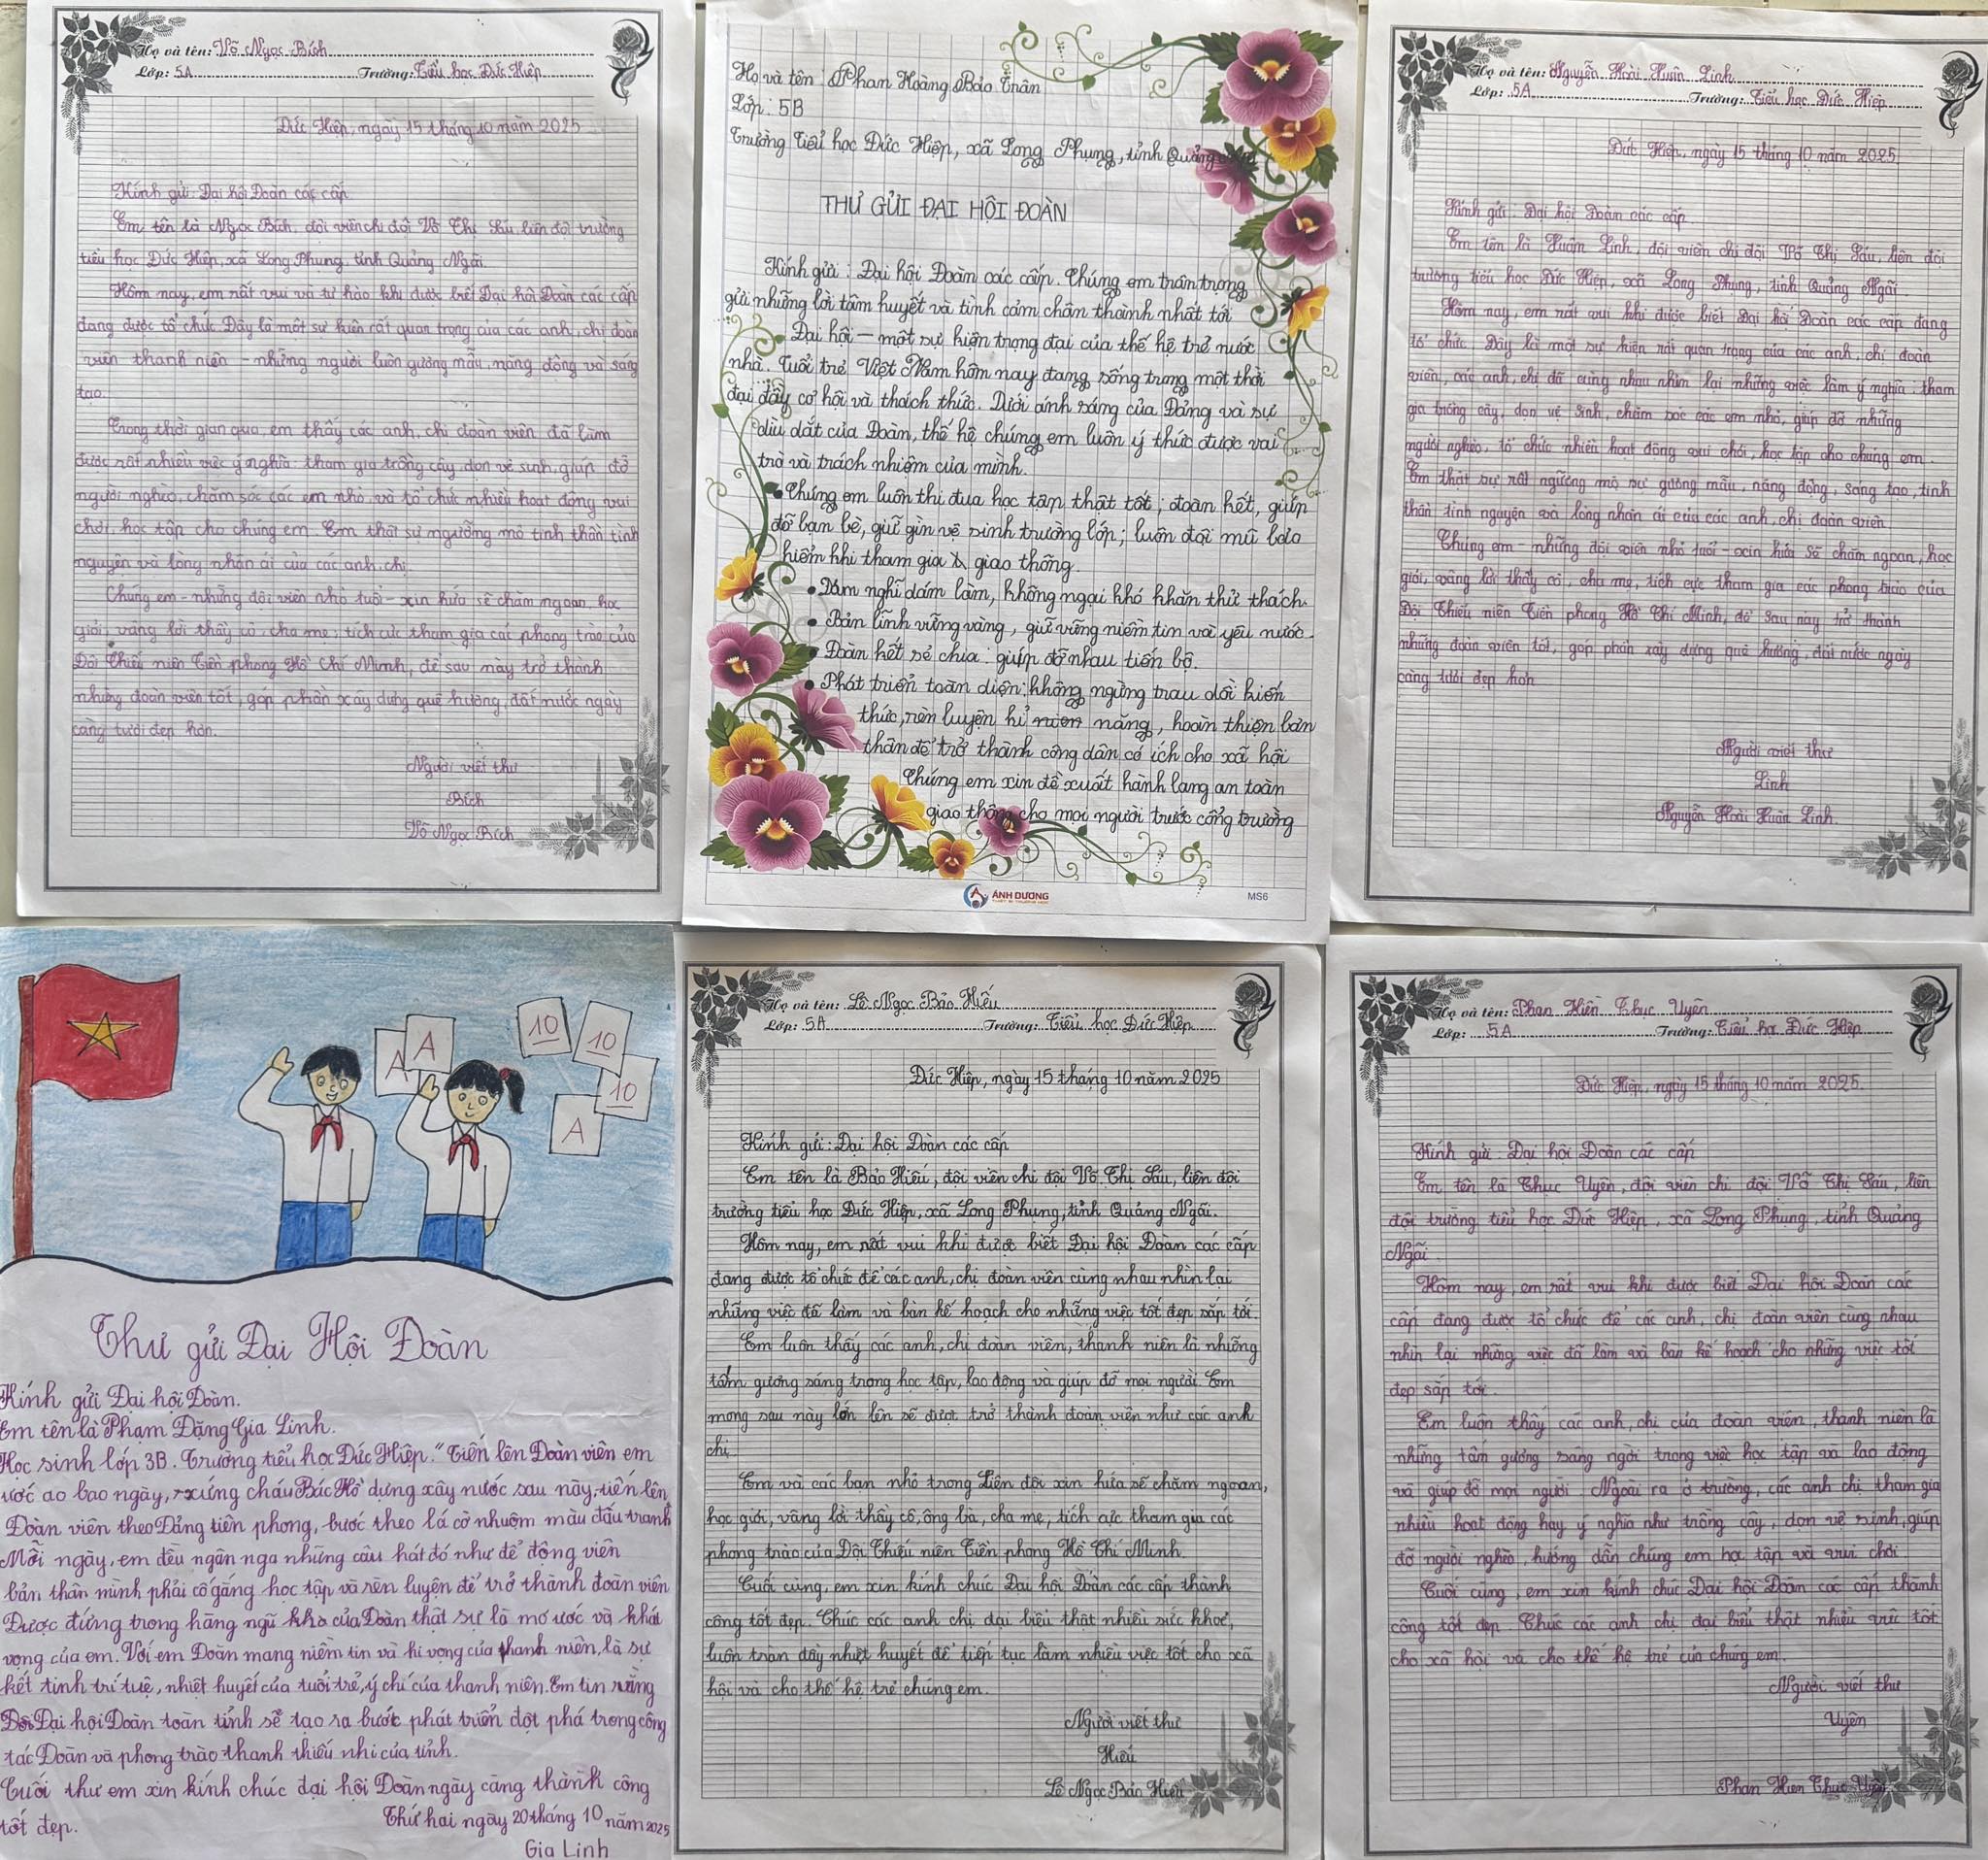 Họ và tên: Võ Ngọc Bích
Lớp: 5A Trường: Tiểu học Đức Hiệp
Đức Hiệp, ngày 15 tháng 10 năm 2025
Kính gửi: Đại hội Đoàn các cấp
Em tên là Ngọc Bích, đội viên chi đội Võ Thị Sáu, liên đội trường
tiểu học Đức Hiệp, xã Long Phụng, tỉnh Quảng Ngãi.
Hôm nay, em rất vui và tự hào khi được biết Đại hội Đoàn các cấp
đang được tổ chức. Đây là một sự kiện rất quan trọng của các anh, chị đoàn
viên thanh niên – những người luôn gương mẫu, năng động và sáng
tạo.
Trong thời gian qua, em thấy các anh, chị đoàn viên đã làm
được rất nhiều việc ý nghĩa: tham gia trồng cây, dọn vệ sinh, giúp đỡ
người nghèo, chăm sóc các em nhỏ, và tổ chức nhiều hoạt động vui
chơi, học tập cho chúng em. Em thật sự ngưỡng mộ tinh thần tình
nguyện và lòng nhân ái của các anh, chị.
Chúng em – những đội viên nhỏ tuổi – xin hứa sẽ chăm ngoan, học
giỏi, vâng lời thầy cô, cha mẹ, tích cực tham gia các phong trào của
Đội Thiếu niên Tiền phong Hồ Chí Minh, để sau này trở thành
những đoàn viên tốt, góp phần xây dựng quê hương, đất nước ngày
càng tươi đẹp hơn.
Người viết thư
Bích
Võ Ngọc Bích
Họ và tên: Phan Hoàng Bảo Trân
Lớp: 5B
Trường Tiểu học Đức Hiệp, xã Long Phụng, tỉnh Quảng
THƯ GỬI ĐẠI HỘI ĐOÀN
Kính gửi: Đại hội Đoàn các cấp. Chúng em trân trọng
gửi những lời tâm huyết và tình cảm chân thành nhất tới
Đại hội – một sự kiện trọng đại của thế hệ trẻ nước
nhà. Tuổi trẻ Việt Nam hôm nay đang sống trong một thời
đại đầy cơ hội và thách thức. Dưới ánh sáng của Đảng và sự
dìu dắt của Đoàn, thế hệ chúng em luôn ý thức được vai
trò và trách nhiệm của mình.
• Chúng em luôn thi đua học tập thật tốt; đoàn kết, giúp
đỡ bạn bè, giữ gìn vệ sinh trường lớp; luôn đội mũ bảo
hiểm khi tham gia giao thông.
• Dám nghĩ dám làm, không ngại khó khăn thử thách.
• Bản lĩnh vững vàng, giữ vững niềm tin và yêu nước.
• Đoàn kết sẻ chia: giúp đỡ nhau tiến bộ.
• Phát triển toàn diện: không ngừng trau dồi kiến
thức, rèn luyện kĩ năng, hoàn thiện bản
thân để trở thành công dân có ích cho xã hội
Chúng em xin đề xuất hành lang an toàn
giao thông cho mọi người trước cổng trường
ÁNH DƯƠNG
MS6
Họ và tên: Nguyễn Hoài Xuân Linh
Lớp: 5A Trường: Tiểu học Đức Hiệp
Đức Hiệp, ngày 15 tháng 10 năm 2025
Kính gửi: Đại hội Đoàn các cấp
Em tên là Xuân Linh, đội viên chi đội Võ Thị Sáu, liên đội
trường tiểu học Đức Hiệp, xã Long Phụng, tỉnh Quảng Ngãi
Hôm nay, em rất vui khi được biết Đại hội Đoàn các cấp đang
tổ chức. Đây là một sự kiện rất quan trọng của các anh, chị đoàn
viên, các anh, chị đã cùng nhau nhìn lại những việc làm ý nghĩa: tham
gia trồng cây, dọn vệ sinh, chăm sóc các em nhỏ, giúp đỡ những
người nghèo, tổ chức nhiều hoạt động vui chơi, học tập cho chúng em.
Em thật sự rất ngưỡng mộ sự gương mẫu, năng động, sáng tạo, tinh
thần tình nguyện và lòng nhân ái của các anh, chị đoàn viên.
Chúng em – những đội viên nhỏ tuổi – xin hứa sẽ chăm ngoan, học
giỏi, vâng lời thầy cô, cha mẹ, tích cực tham gia các phong trào của
Đội Thiếu niên Tiền phong Hồ Chí Minh, để sau này trở thành
những đoàn viên tốt, góp phần xây dựng quê hương, đất nước ngày
càng tươi đẹp hơn
Người viết thư
Linh
Nguyễn Hoài Xuân Linh
A
A
10
10
10
A
Thư gửi Đại Hội Đoàn
Kính gửi Đại hội Đoàn.
Em tên là Phạm Đặng Gia Linh.
Học sinh lớp 3B. Trường tiểu học Đức Hiệp. "Tiến lên Đoàn viên em
ước ao bao ngày, xứng cháu Bác Hồ dựng xây nước sau này, tiến lên
Đoàn viên theo Đảng tiên phong, bước theo lá cờ nhuộm màu đấu tranh
Mỗi ngày, em đều ngân nga những câu hát đó như để động viên
bản thân mình phải cố gắng học tập và rèn luyện để trở thành đoàn viên
Được đứng trong hàng ngũ của Đoàn thật sự là mơ ước và khát
vọng của em. Với em Đoàn mang niềm tin và hi vọng của thanh niên, là sự
kết tinh trí tuệ, nhiệt huyết của tuổi trẻ, ý chí của thanh niên. Em tin rằng
Đại hội Đoàn toàn tỉnh sẽ tạo ra bước phát triển đột phá trong công
tác Đoàn và phong trào thanh thiếu nhi của tỉnh.
Cuối thư em xin kính chúc đại hội Đoàn ngày càng thành công
tốt đẹp.
Thứ hai ngày 20 tháng 10 năm 2025
Gia Linh
Họ và tên: Lê Ngọc Bảo Hiếu
Lớp: 5A Trường: Tiểu học Đức Hiệp
Đức Hiệp, ngày 15 tháng 10 năm 2025
Kính gửi: Đại hội Đoàn các cấp
Em tên là Bảo Hiếu, đội viên chi đội Võ Thị Sáu, liên đội
trường tiểu học Đức Hiệp, xã Long Phụng, tỉnh Quảng Ngãi.
Hôm nay, em rất vui khi được biết Đại hội Đoàn các cấp
đang được tổ chức để các anh, chị đoàn viên cùng nhau nhìn lại
những việc đã làm và bàn kế hoạch cho những việc tốt đẹp sắp tới.
Em luôn thấy các anh, chị đoàn viên, thanh niên là những
tấm gương sáng trong học tập, lao động và giúp đỡ mọi người. Em
mong sau này lớn lên sẽ được trở thành đoàn viên như các anh
chị.
Em và các bạn nhỏ trong Liên đội xin hứa sẽ chăm ngoan,
học giỏi, vâng lời thầy cô, ông bà, cha mẹ, tích cực tham gia các
phong trào của Đội Thiếu niên Tiền phong Hồ Chí Minh
Cuối cùng, em xin kính chúc Đại hội Đoàn các cấp thành
công tốt đẹp. Chúc các anh chị đại biểu thật nhiều sức khoẻ,
luôn tràn đầy nhiệt huyết để tiếp tục làm nhiều việc tốt cho xã
hội và cho thế hệ trẻ chúng em.
Người viết thư
Hiếu
Lê Ngọc Bảo Hiếu
Họ và tên: Phan Hiền Thục Uyên
Lớp: 5A Trường: Tiểu học Đức Hiệp
Đức Hiệp, ngày 15 tháng 10 năm 2025.
Kính gửi: Đại hội Đoàn các cấp
Em tên là Thục Uyên, đội viên chi đội Võ Thị Sáu, liên
đội trường tiểu học Đức Hiệp, xã Long Phụng, tỉnh Quảng
Ngãi.
Hôm nay, em rất vui khi được biết Đại hội Đoàn các
cấp đang được tổ chức để các anh, chị đoàn viên cùng nhau
nhìn lại những việc đã làm và bàn kế hoạch cho những việc tốt
đẹp sắp tới.
Em luôn thấy các anh, chị của đoàn viên, thanh niên là
những tấm gương sáng ngời trong việc học tập và lao động
và giúp đỡ mọi người. Ngoài ra ở trường, các anh chị tham gia
nhiều hoạt động hay ý nghĩa như trồng cây, dọn vệ sinh, giúp
đỡ người nghèo, hướng dẫn chúng em học tập và vui chơi
Cuối cùng, em xin kính chúc Đại hội Đoàn các cấp thành
công tốt đẹp. Chúc các anh chị đại biểu thật nhiều việc tốt
cho xã hội và cho thế hệ trẻ của chúng em.
Người viết thư
Uyên
Phan Hiền Thục Uyên